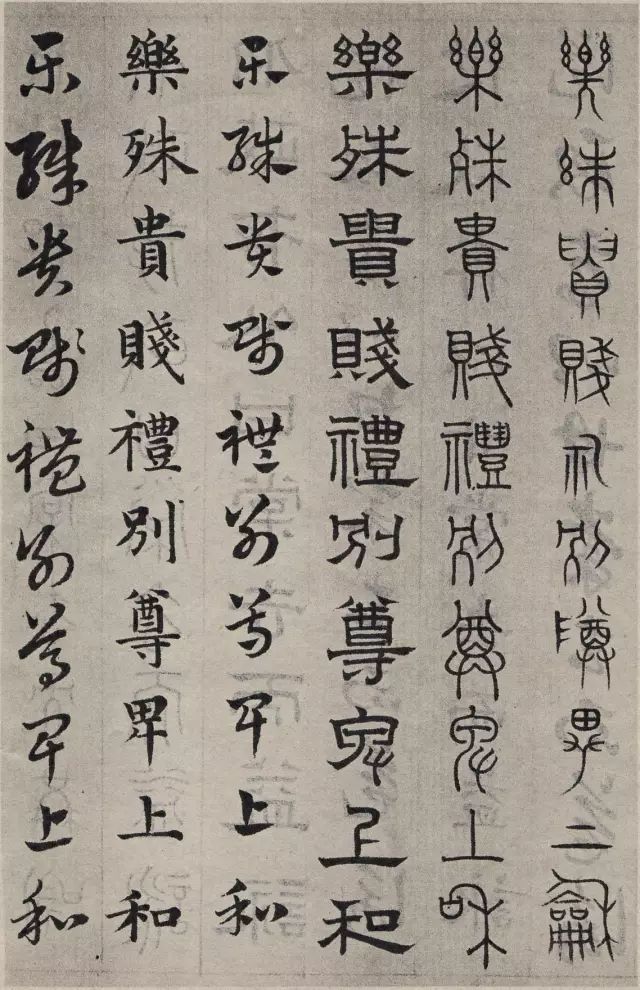 樂殊貴賤礼別尊卑上龢
樂殊貴賤禮別尊卑上和
樂殊貴賤禮別尊卑上和
樂殊貴賤禮別尊卑上和
樂殊貴賤禮別尊卑上和
樂殊貴賤禮別尊卑上和